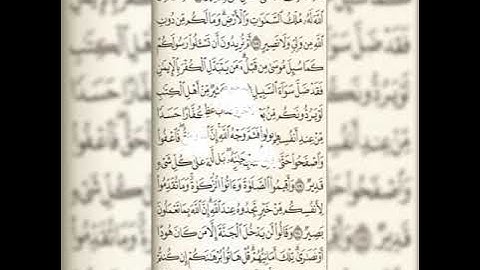 اللَّهَ لَهُ مُلْكُ السَّمَٰوَٰتِ وَالْأَرْضِ وَمَا لَكُم مِّن دُونِ
اللَّهِ مِن وَلِيٍّ وَلَا نَصِيرٍ أَمْ تُرِيدُونَ أَن تَسْـَٔلُوا۟ رَسُولَكُمْ
كَمَا سُئِلَ مُوسَىٰ مِن قَبْلُ وَمَن يَتَبَدَّلِ الْكُفْرَ بِالْإِيمَٰنِ
فَقَدْ ضَلَّ سَوَآءَ السَّبِيلِ كَثِيرٌ مِّنْ أَهْلِ الْكِتَٰبِ
لَوْ يَرُدُّونَكُم مِّنۢ كُفَّارًا حَسَدًا
مِّنْ عِندِ أَنفُسِهِم فَثَمَّ وَجْهُ اللَّهِ إِنَّ اللَّهَ فَاعْفُوا۟
وَاصْفَحُوا۟ حَتَّىٰ بَل عَلَىٰ كُلِّ شَىْءٍ
قَدِيرٌ وَأَقِيمُوا۟ الصَّلَوٰةَ وَءَاتُوا۟ الزَّكَوٰةَ وَمَا تُقَدِّمُوا۟
لِأَنفُسِكُم مِّنْ خَيْرٍ تَجِدُوهُ عِندَ اللَّهِ إِنَّ اللَّهَ بِمَا تَعْمَلُونَ
بَصِيرٌ وَقَالُوا۟ لَن يَدْخُلَ الْجَنَّةَ إِلَّا مَن كَانَ هُودًا
أَوْ نَصَٰرَىٰ تِلْكَ أَمَانِيُّهُمْ قُلْ هَاتُوا۟ بُرْهَٰنَكُمْ إِن كُنتُمْ